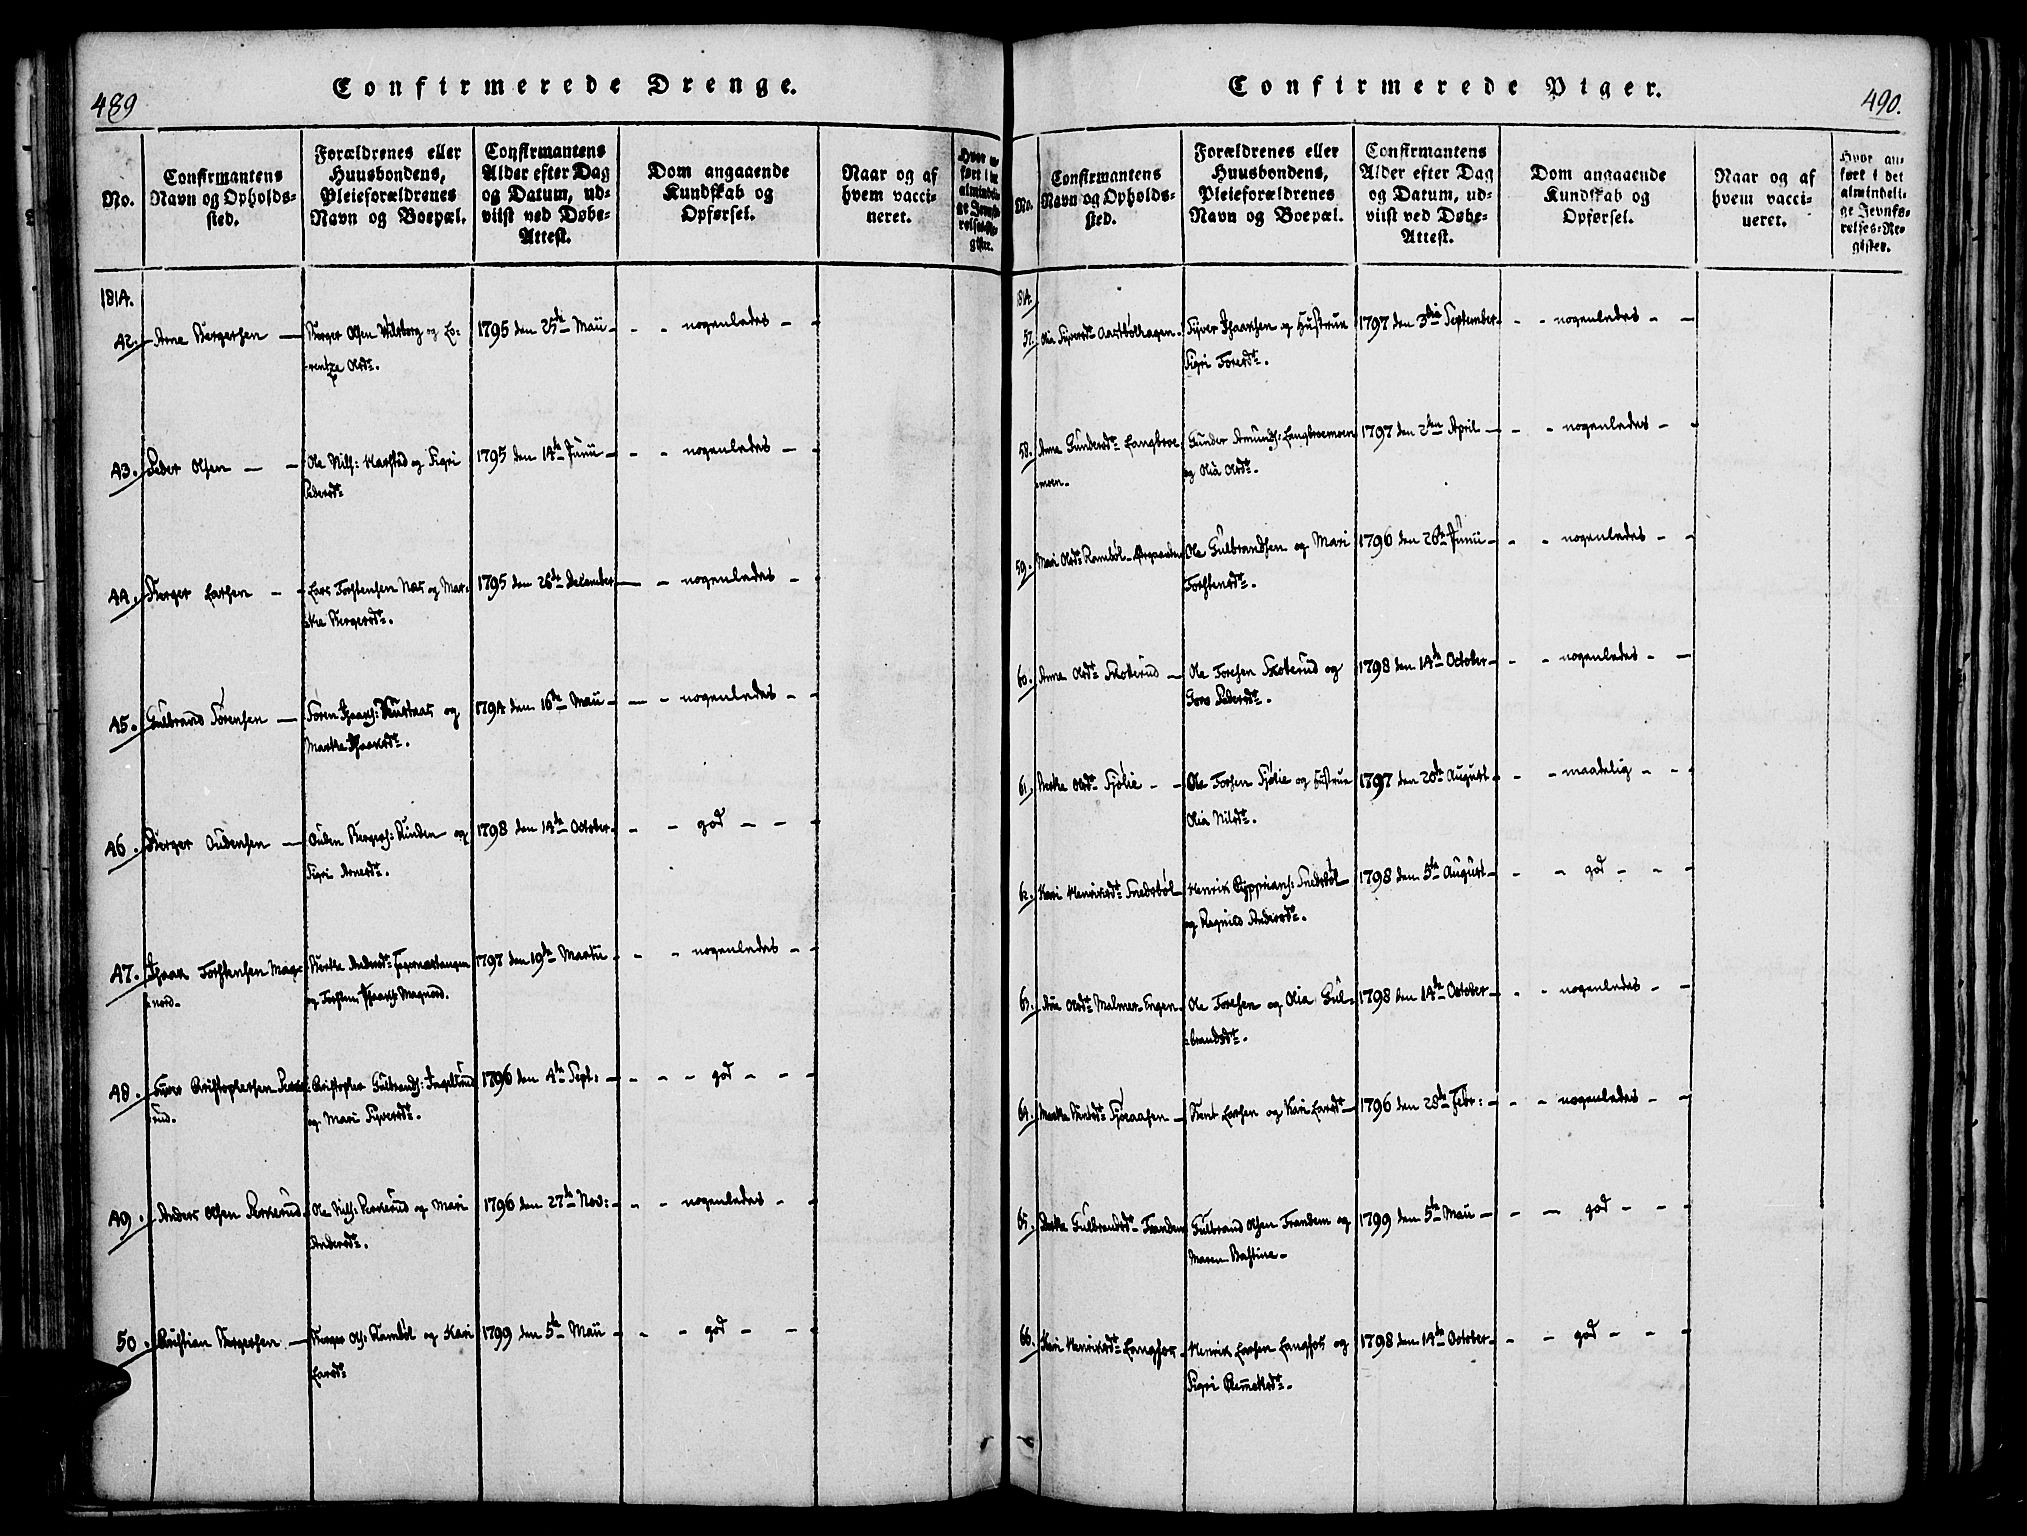 489
Confirmerede Drenge.
No.
Confirmantens
Navn og Opholds-
sted.
Forældrenes eller
Huusbondens,
Pleieforældrenes
Navn og Boepæl.
Confirmantens
Alder efter Dag
og Datum, ud-
viist ved Døbe-
Attest.
Dom angaaende
Kundskab og
Opførsel.
Naar og af
hvem vacci-
neret.
1814.
42. Arne Bergersen
Berger Olsen og Lo-
rentze Olsdr.
1795 den 25de Maii - - nogenledes - -
43. Peder Olsen - -
Ole Nils: Harstad og Sigri
Pedersdr.
1795 den 14de Junii - - nogenledes - -
44. Berger Larsen - -
Lars Torstensen Næs og Mar-
the Bergersdr.
1795 den 26de December - - nogenledes -
45. Gulbrand Sørensen
Søren Isaachs: og
Marthe Isaachsdr.
1794 den 16de Maii - - nogenledes - -
46. Berger Audensen
Auden Bergers: Runden og
Sigri Arnesdr.
1798 den 14de October - - god - - -
47. Isaak Torstensen Mag-
nord.
Berthe Andersdr
og Torsten Isaachs: Magnord.
1797 den 19de Martii - - nogenledes - -
48. Christophersen
rud.
Christopher Gulbrands:
og Mari Syversdr.
1796 den 4de Sept: - - - god - - -
49. Anders Olsen Perserud
Ole Nils: Perserud og Mari
Andersdr.
1796 den 27de Nov: - - nogenledes - -
50. Christian Bergersen
Berger Ols: Rambøl og Kari
Larsdr
1799 den 5te Maii - - god - - -
490.
Confirmerede Piger.
No.
Confirmantens
Navn og Opholds-
sted.
Forældrenes eller
Huusbondens,
Pleieforældrenes
Navn og Boepæl.
Confirmantens
Alder efter Dag
og Datum, ud-
viist ved Døbe-
Attest.
Dom angaaende
Kundskab og
Opførsel.
Naar og af
hvem vacci-
neret.
Hvor an-
ført i det
almindeli-
ge Jevnfø-
relses-Re-
gister.
1814.
57. Olia Syversdr
Syver Isaachsen og Hustrue
Sigri Toresdr.
1797 den 3die September - - nogenledes - -
58. Anne Gundersdr Langbroe-
moen.
Gunder Amunds: Langbroemoen
og Olia Olsdr.
1797 den 2den April - - nogenledes - -
59. Mari Olsdr Rambøl
Ole Gulbrandsen og Mari
Torstensdr.
1796 den 26de Junii - - nogenledes - -
60. Anne Olsdr Skoterud
Ole Toresen Skoterud og
Goro Pedersdr.
1798 den 14de October - - nogenledes - -
61. Berthe Olsdr Sjølie - -
Ole Torsen Sjølie og Hustrue
Olia Nilsdr.
1797 den 20de August - - maadelig - -
62. Kari Henriksdr Snedsbøl
Henrik Cypprians: Snedsbøl
og Ragnild Andersdr.
1798 den 5te August - - god - - -
63. Olsdr Malmer-Engen
Ole Toresen og Olia Gul-
brandsdr.
1798 den 14de October - - nogenledes - -
64. Marthe Sjøeaasen
Larsen og Kari Larsdr
1796 den 28de Febr: - - nogenledes - -
65. Gulbrandsdr Trandem
Gulbrand Olsen Trandem og
Maren Bastine
1799 den 5te Maii - - god - - -
66. Kari Henriksdr Langfos
Henrik Larsen Langfos og
Sigri Clemetsdr.
1798 den 14de October - - god - - -